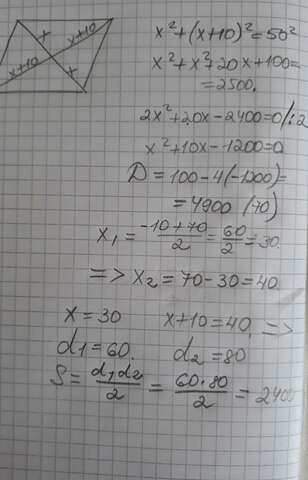 x x+10
x+10 x
x²+(x+10)²=50²
x²+x²+20x+100=
=2500.
2x²+20x-2400=0/:2
x²+10x-1200=0
D=100-4(-1200)=
=4900 (70)
x₁=(-10+70)/2=60/2=30.
=> x₂=70-30=40
x=30 x+10=40 =>
d1=60. d2=80
S=d1d2/2=60·80/2=2400